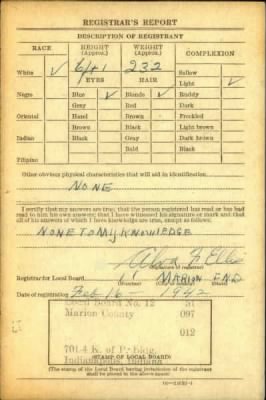 REGISTRAR'S REPORT
DESCRIPTION OF REGISTRANT
RACE HEIGHT (Approx.) WEIGHT (Approx.) COMPLEXION
White ✓ 6/ft 1 232 Sallow
EYES HAIR Light ✓
Negro Blue ✓ Blonde ✓ Ruddy
Gray Red Dark
Oriental Hazel Brown Freckled
Brown Black Light brown
Indian Black Gray Dark brown
Bald Black
Filipino
Other obvious physical characteristics that will aid in identification
NONE
I certify that my answers are true; that the person registered has read or has had
read to him his own answers; that I have witnessed his signature or mark and that
all of his answers of which I have knowledge are true, except as follows:
NONE TO MY KNOWLEDGE
(Signature of registrar)
Registrar for Local Board MARION IND
Date of registration Feb 16 — 1942
Local Board No. 12 31
Marion County 097
012
701-4 K. of P. Bldg.
Indianapolis, Indiana
(STAMP OF LOCAL BOARD)
(The stamp of the Local Board having jurisdiction of the registrant
shall be placed in the above space)